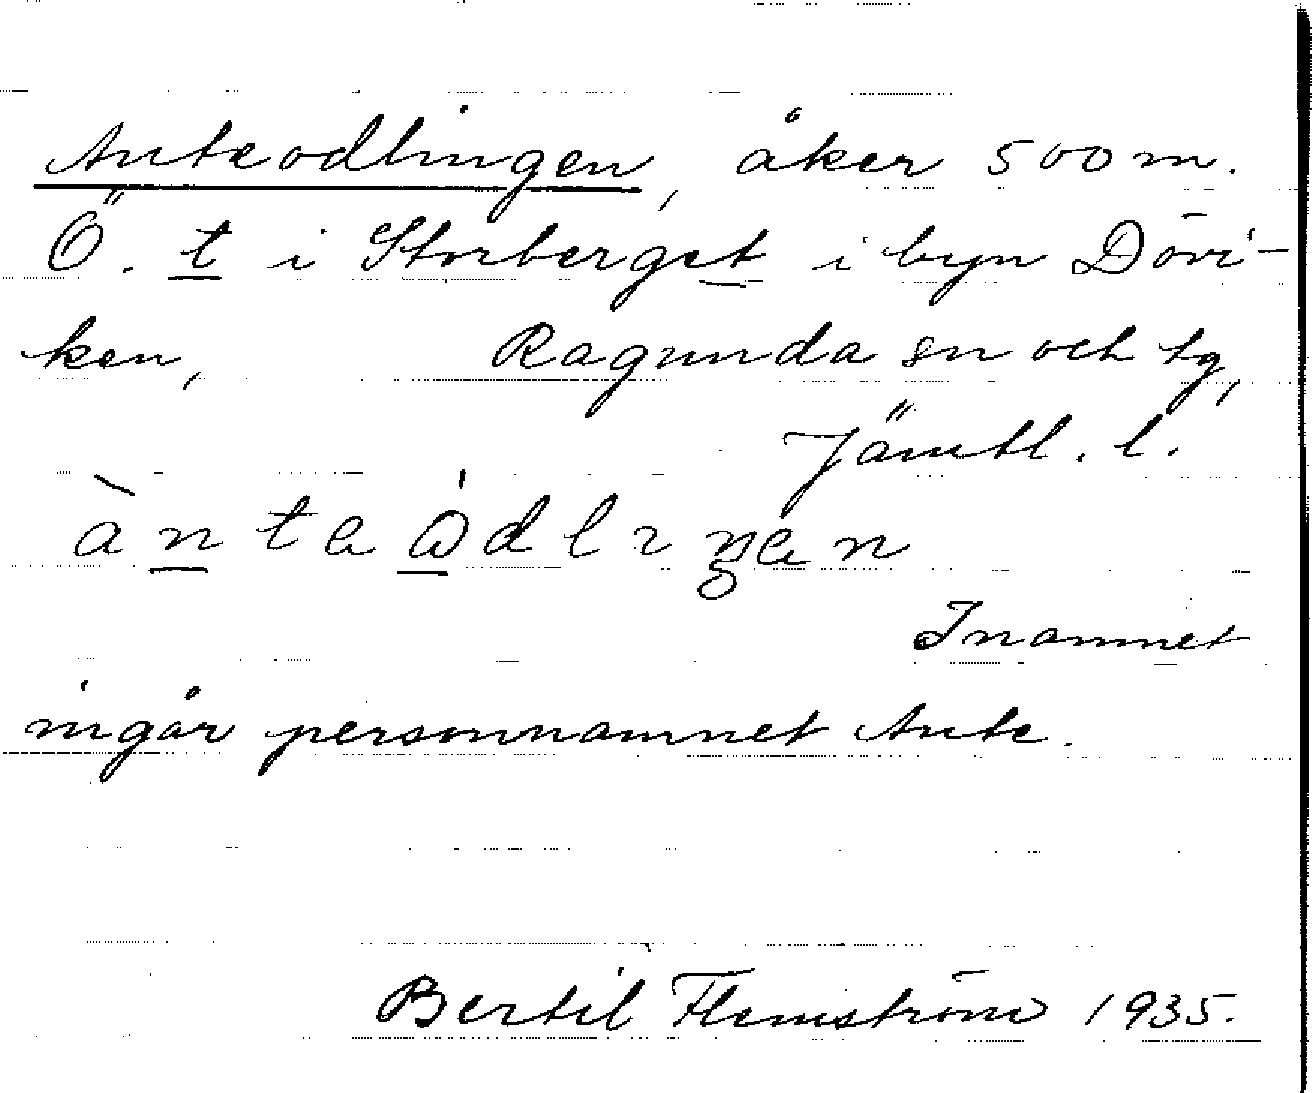 Anteodlingen, åker 500 m.
Ö. t i Storberget i byn Dövi-
ken, Ragunda sn och tg,
Jämtl. l.
ànteòdlıŋen
I namnet
ingår personnamnet Ante.
Bertil Flemström 1935.